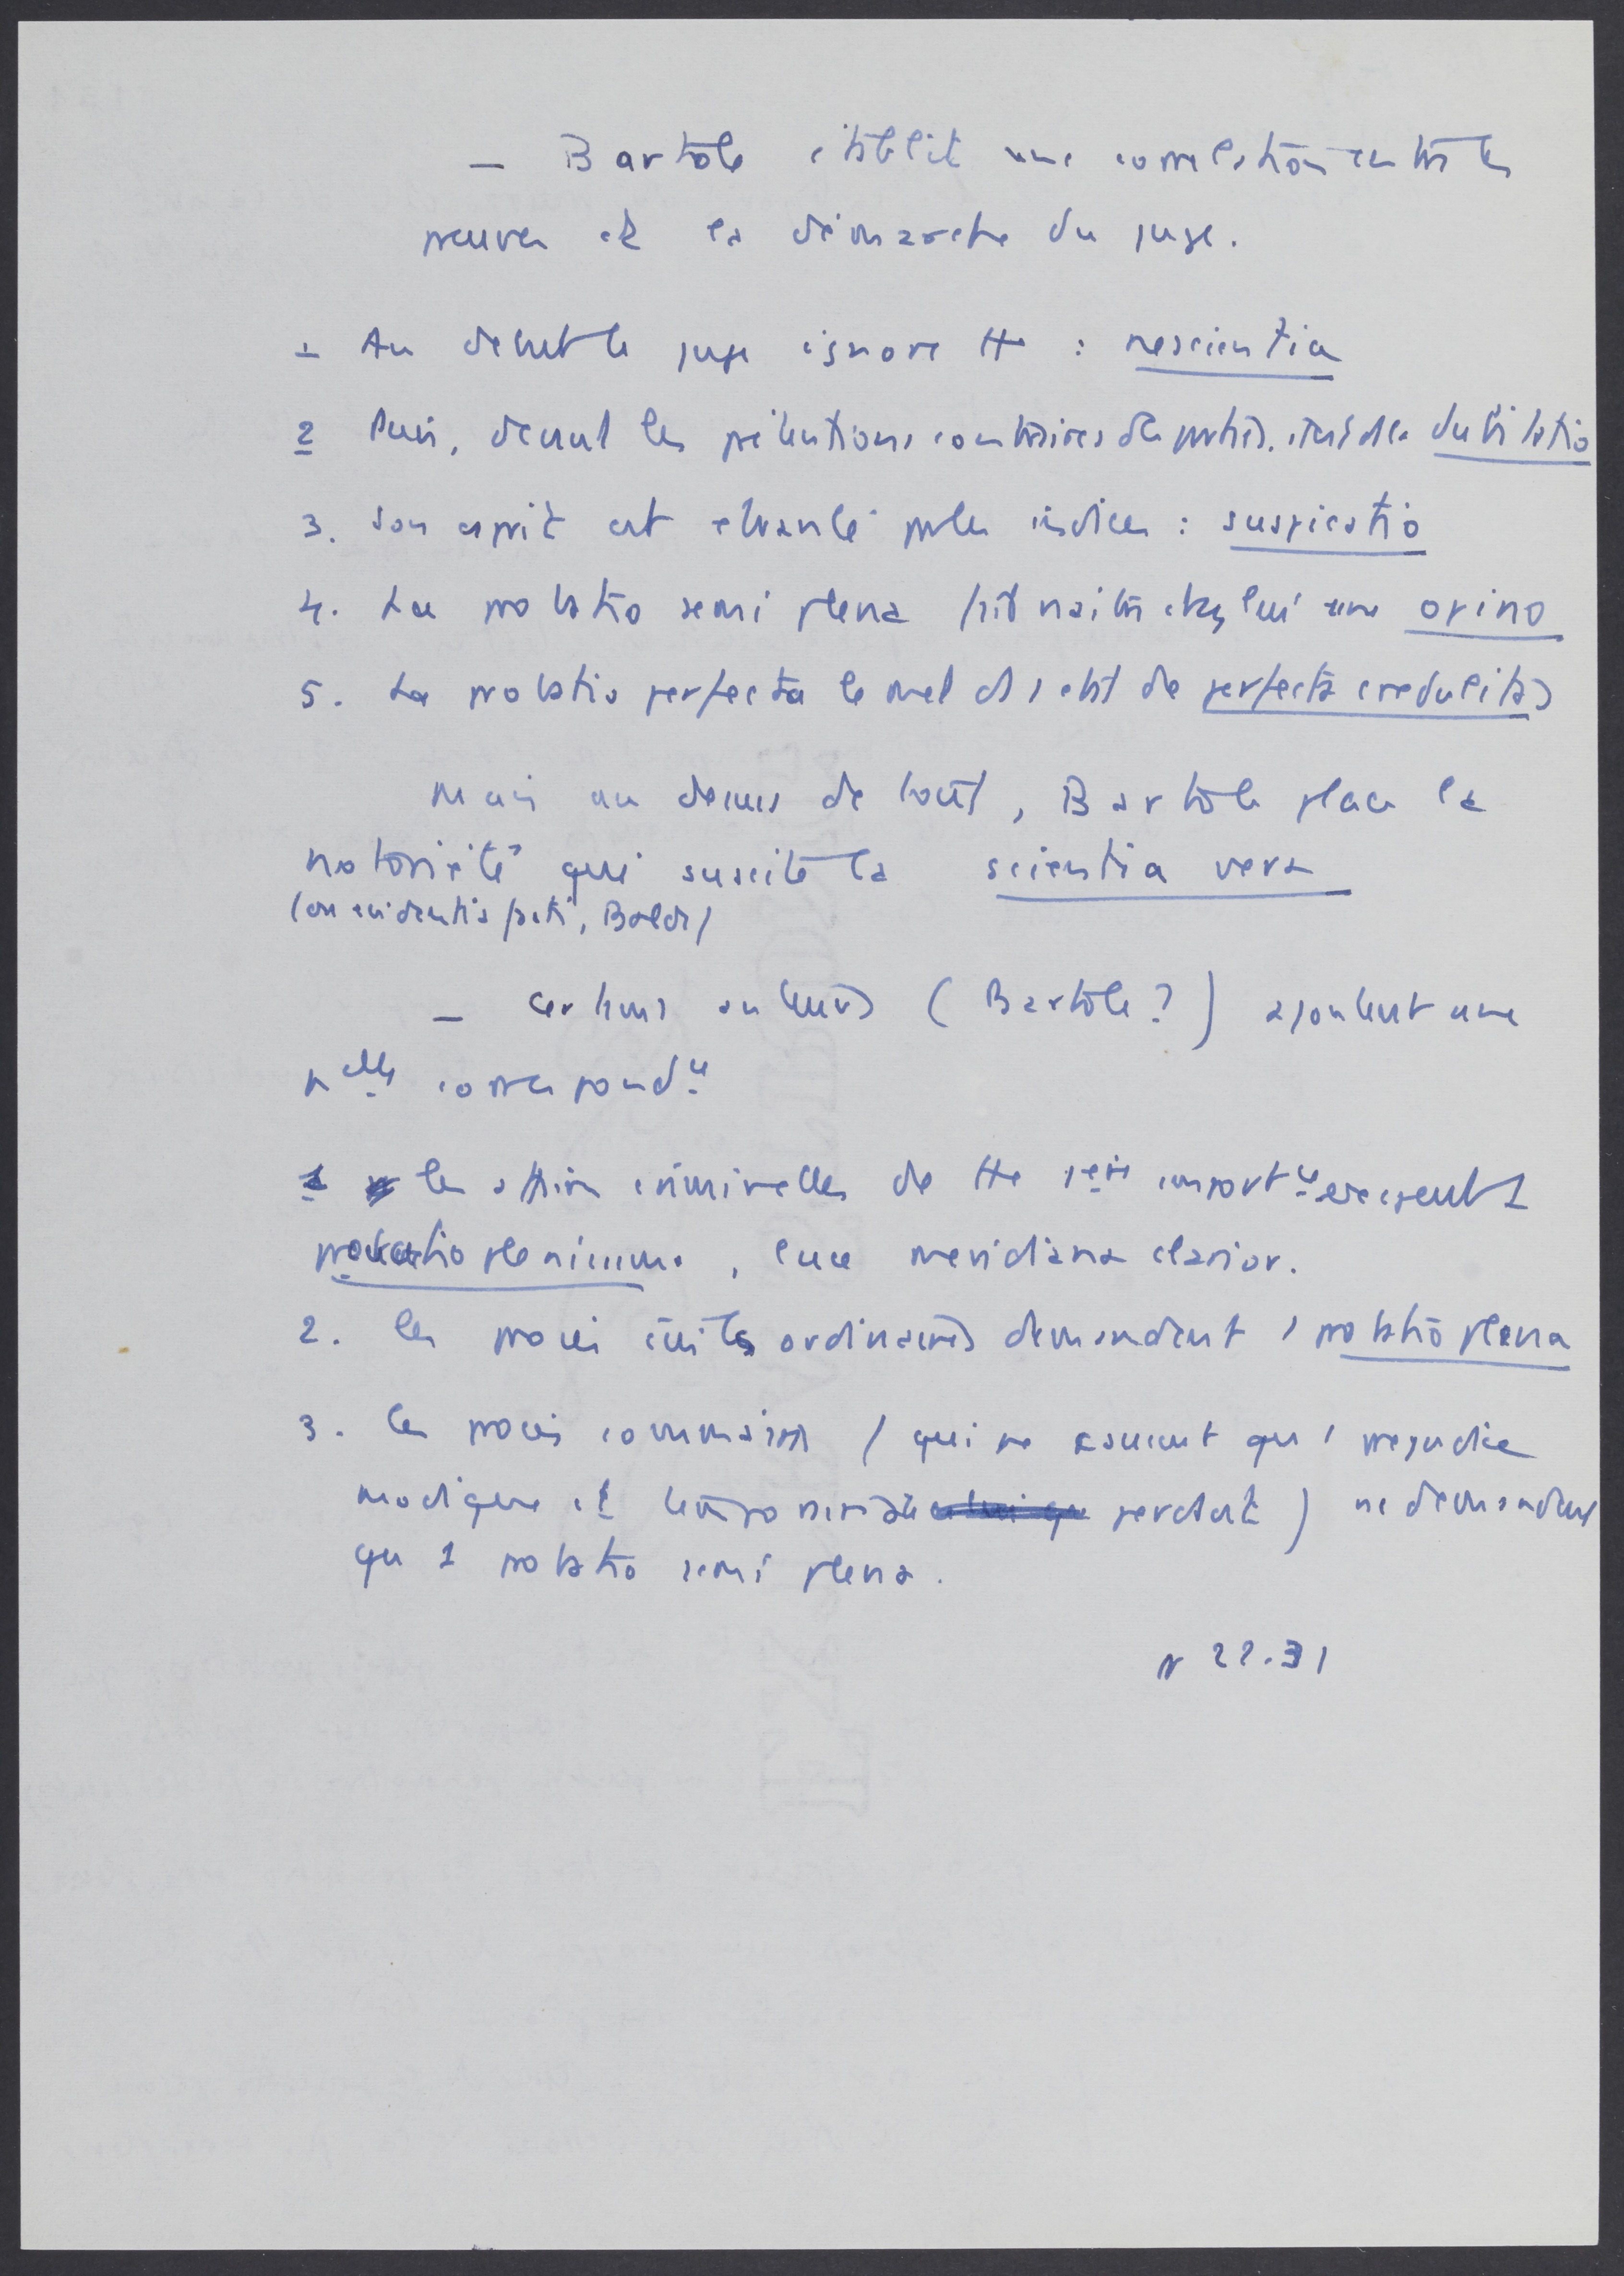 — Bartole établit une corrélation entre les
preuves et la démarche du juge.
1 Au debut le juge ignore tt : nescientia
2 Puis, devant les prétentions contraires des parties, c'est de la dubitatio
3. Son esprit est ebranlé par les indices : suspicatio
4. La probatio semi plena fait naître chez lui une opinio
5. La probatio perfecta le met ds 1 etat de perfecta credulitas
Mais au dessus de tout, Bartole place la
notoriété qui suscite la scientia vera
(ou evidentia facti, Balde)
— Certains auteurs (Bartole ?) ajoutent une
nelle correspondce
1 les affaires criminelles de tte 1ere importce exigent 1
probatio plenissima, luce meridiana clarior.
2. les procès civils ordinaires demandent 1 probatio plena
3. les procès sommaires (qui ne causent qu'1 prejudice
modique et temporaire au perdant) ne demandent
qu 1 probatio semi plena.
22.31